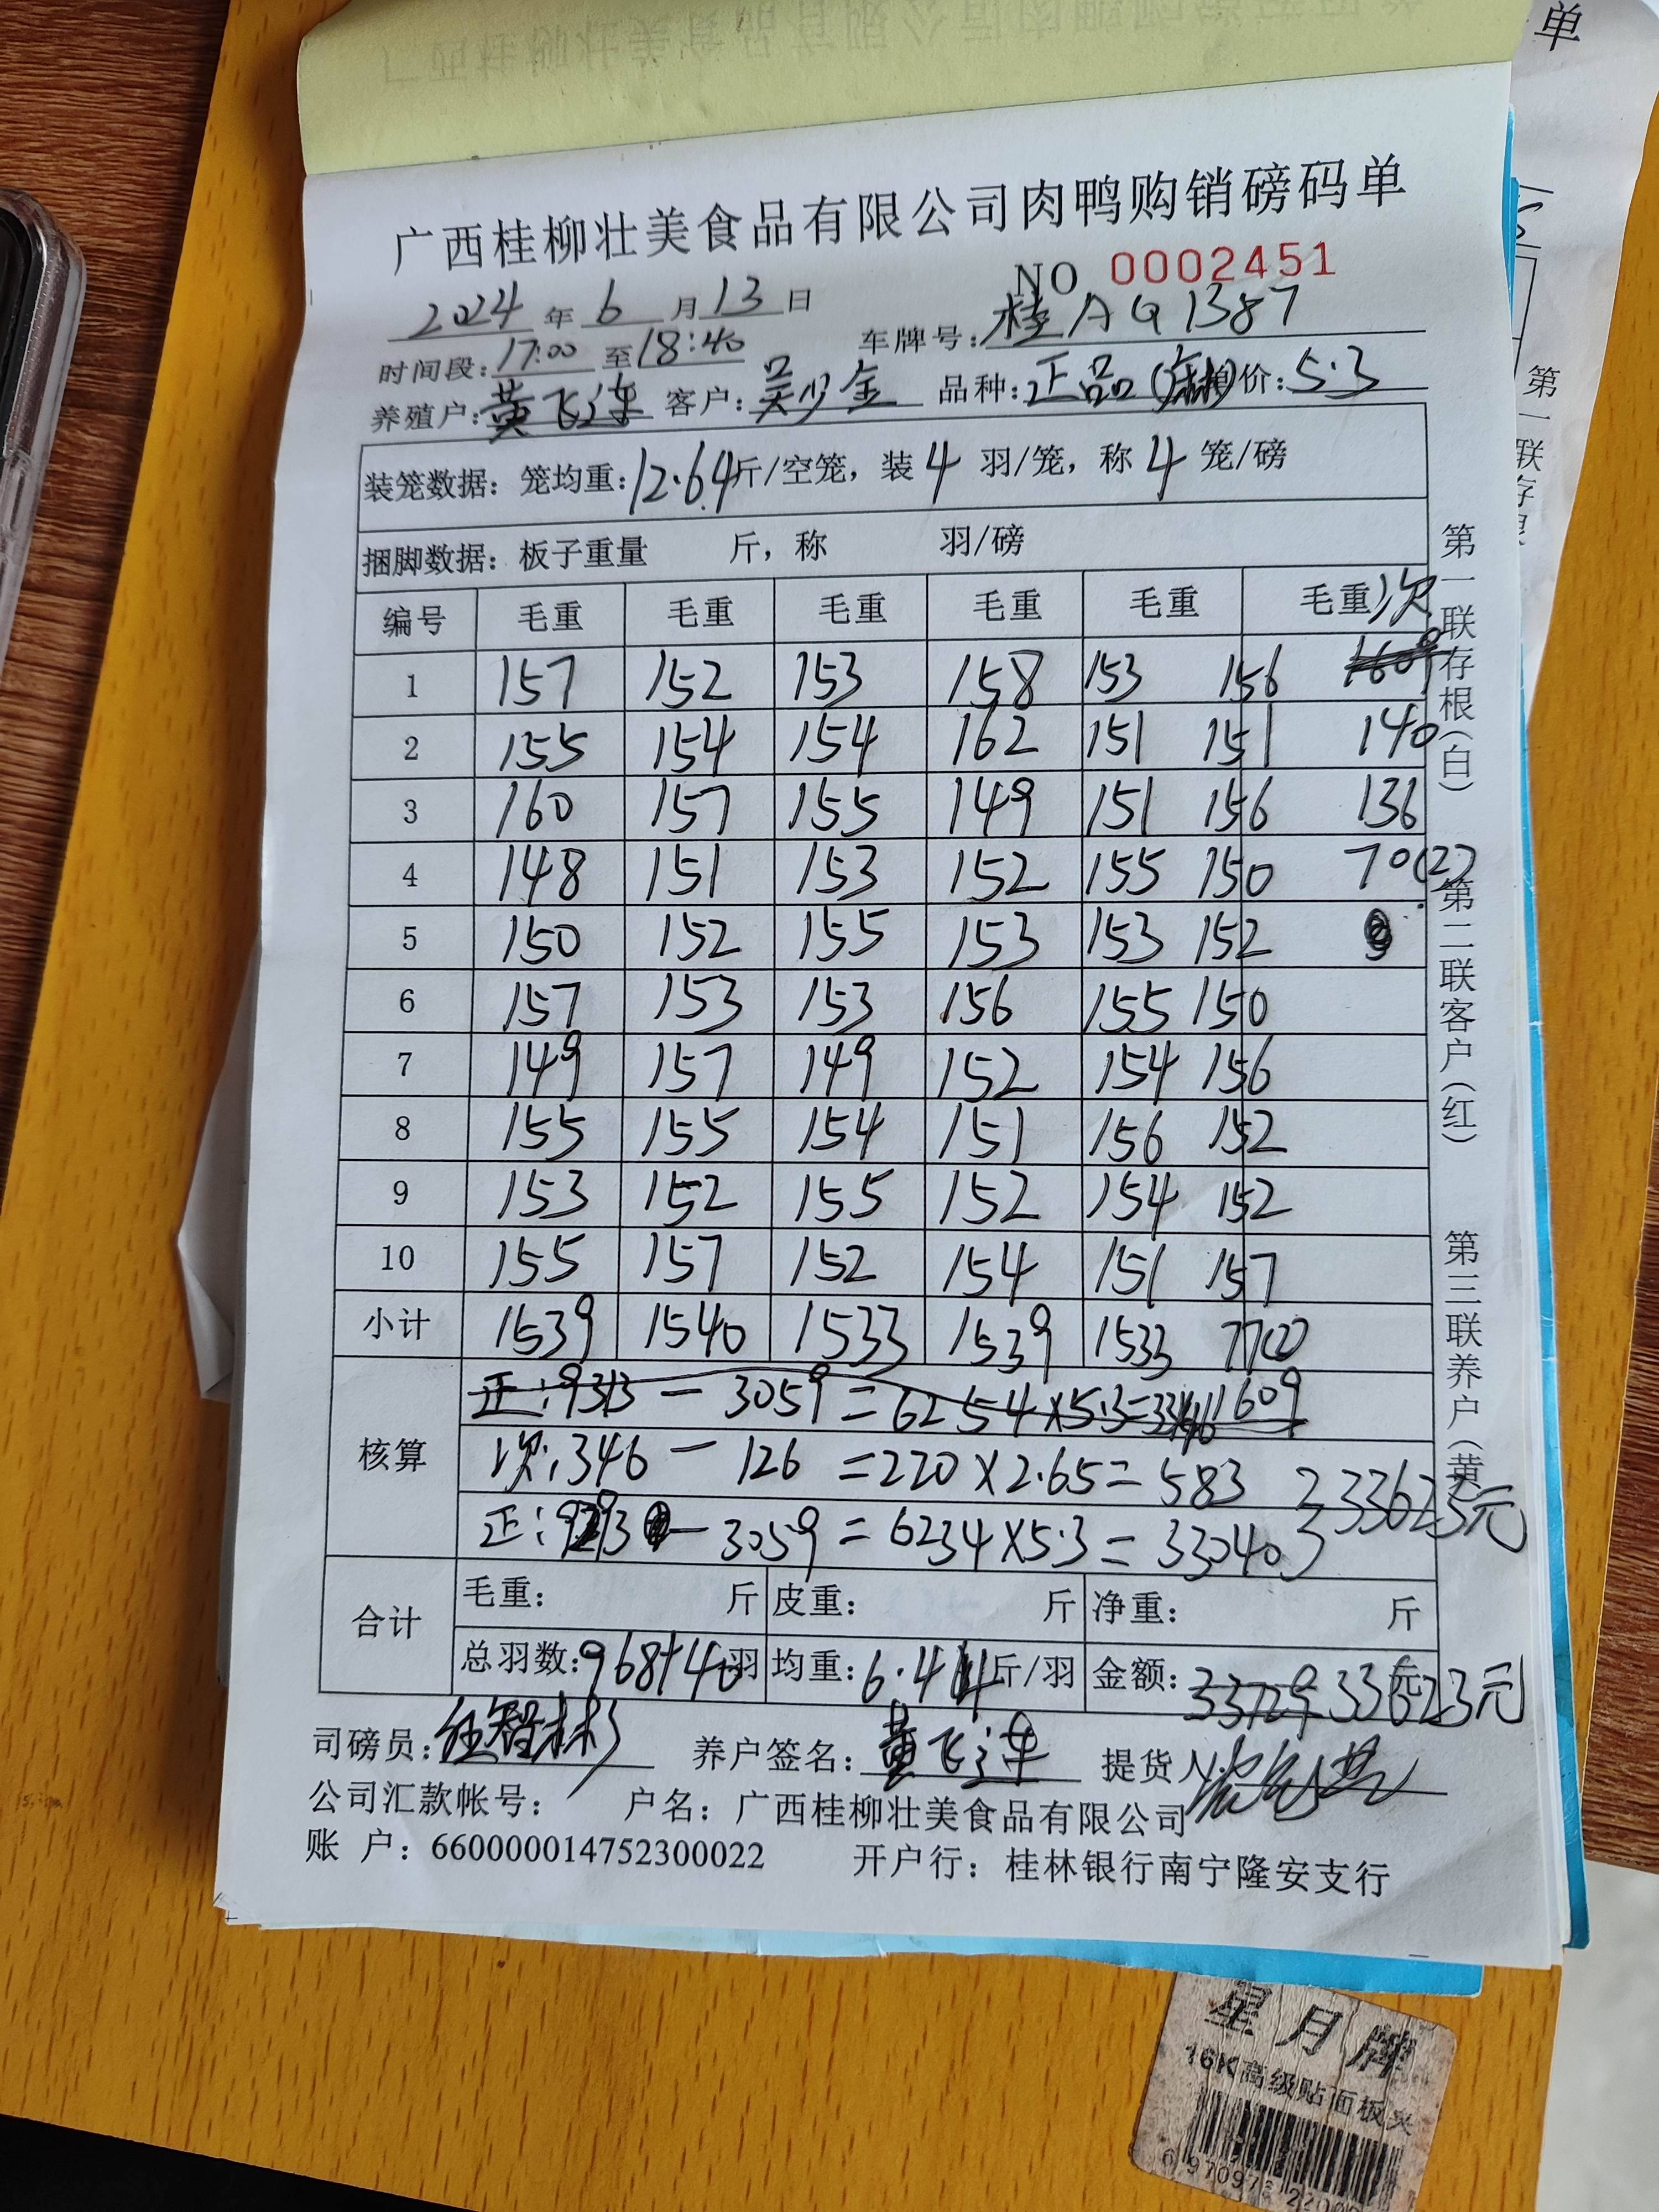 单
广西桂柳壮美食品有限公司肉鸭购销磅码单
NO 0002451
2024 年 6 月 13 日
时间段: 17:00 至 18:40 车牌号: 桂AQ1387
养殖户: 黄飞连 客户: 吴少金 品种: 正品 单价: 5.3
装笼数据: 笼均重: 12.64 斤/空笼, 装 4 羽/笼, 称 4 笼/磅
捆脚数据: 板子重量 斤, 称 羽/磅
编号 毛重 毛重 毛重 毛重 毛重 毛重 次
1 157 152 153 158 153 156 1609
2 155 154 154 162 151 151 140
3 160 157 155 149 151 156 136
4 148 151 153 152 155 150 70(2)
5 150 152 155 153 153 152
6 157 153 153 156 155 150
7 149 157 149 152 154 156
8 155 155 154 151 156 152
9 153 152 155 152 154 152
10 155 157 152 154 151 157
小计 1539 1540 1533 1539 1533
核算
正: 9313 - 3059 = 6254 × 5.3 = 1609
次: 346 - 126 = 220 × 2.65 = 583
正: 9293 - 3059 = 6234 × 5.3 = 33040
33623元
合计 毛重: 斤 皮重: 斤 净重: 斤
总羽数: 968+40 羽 均重: 6.44 斤/羽 金额: 33729 33623元
司磅员: 养户签名: 黄飞连 提货人:
公司汇款帐号: 户名: 广西桂柳壮美食品有限公司
账 户: 660000014752300022 开户行: 桂林银行南宁隆安支行
第一联存根(白) 第二联客户(红) 第三联养户(黄)
第一联存
星月牌
16K高级贴面板夹